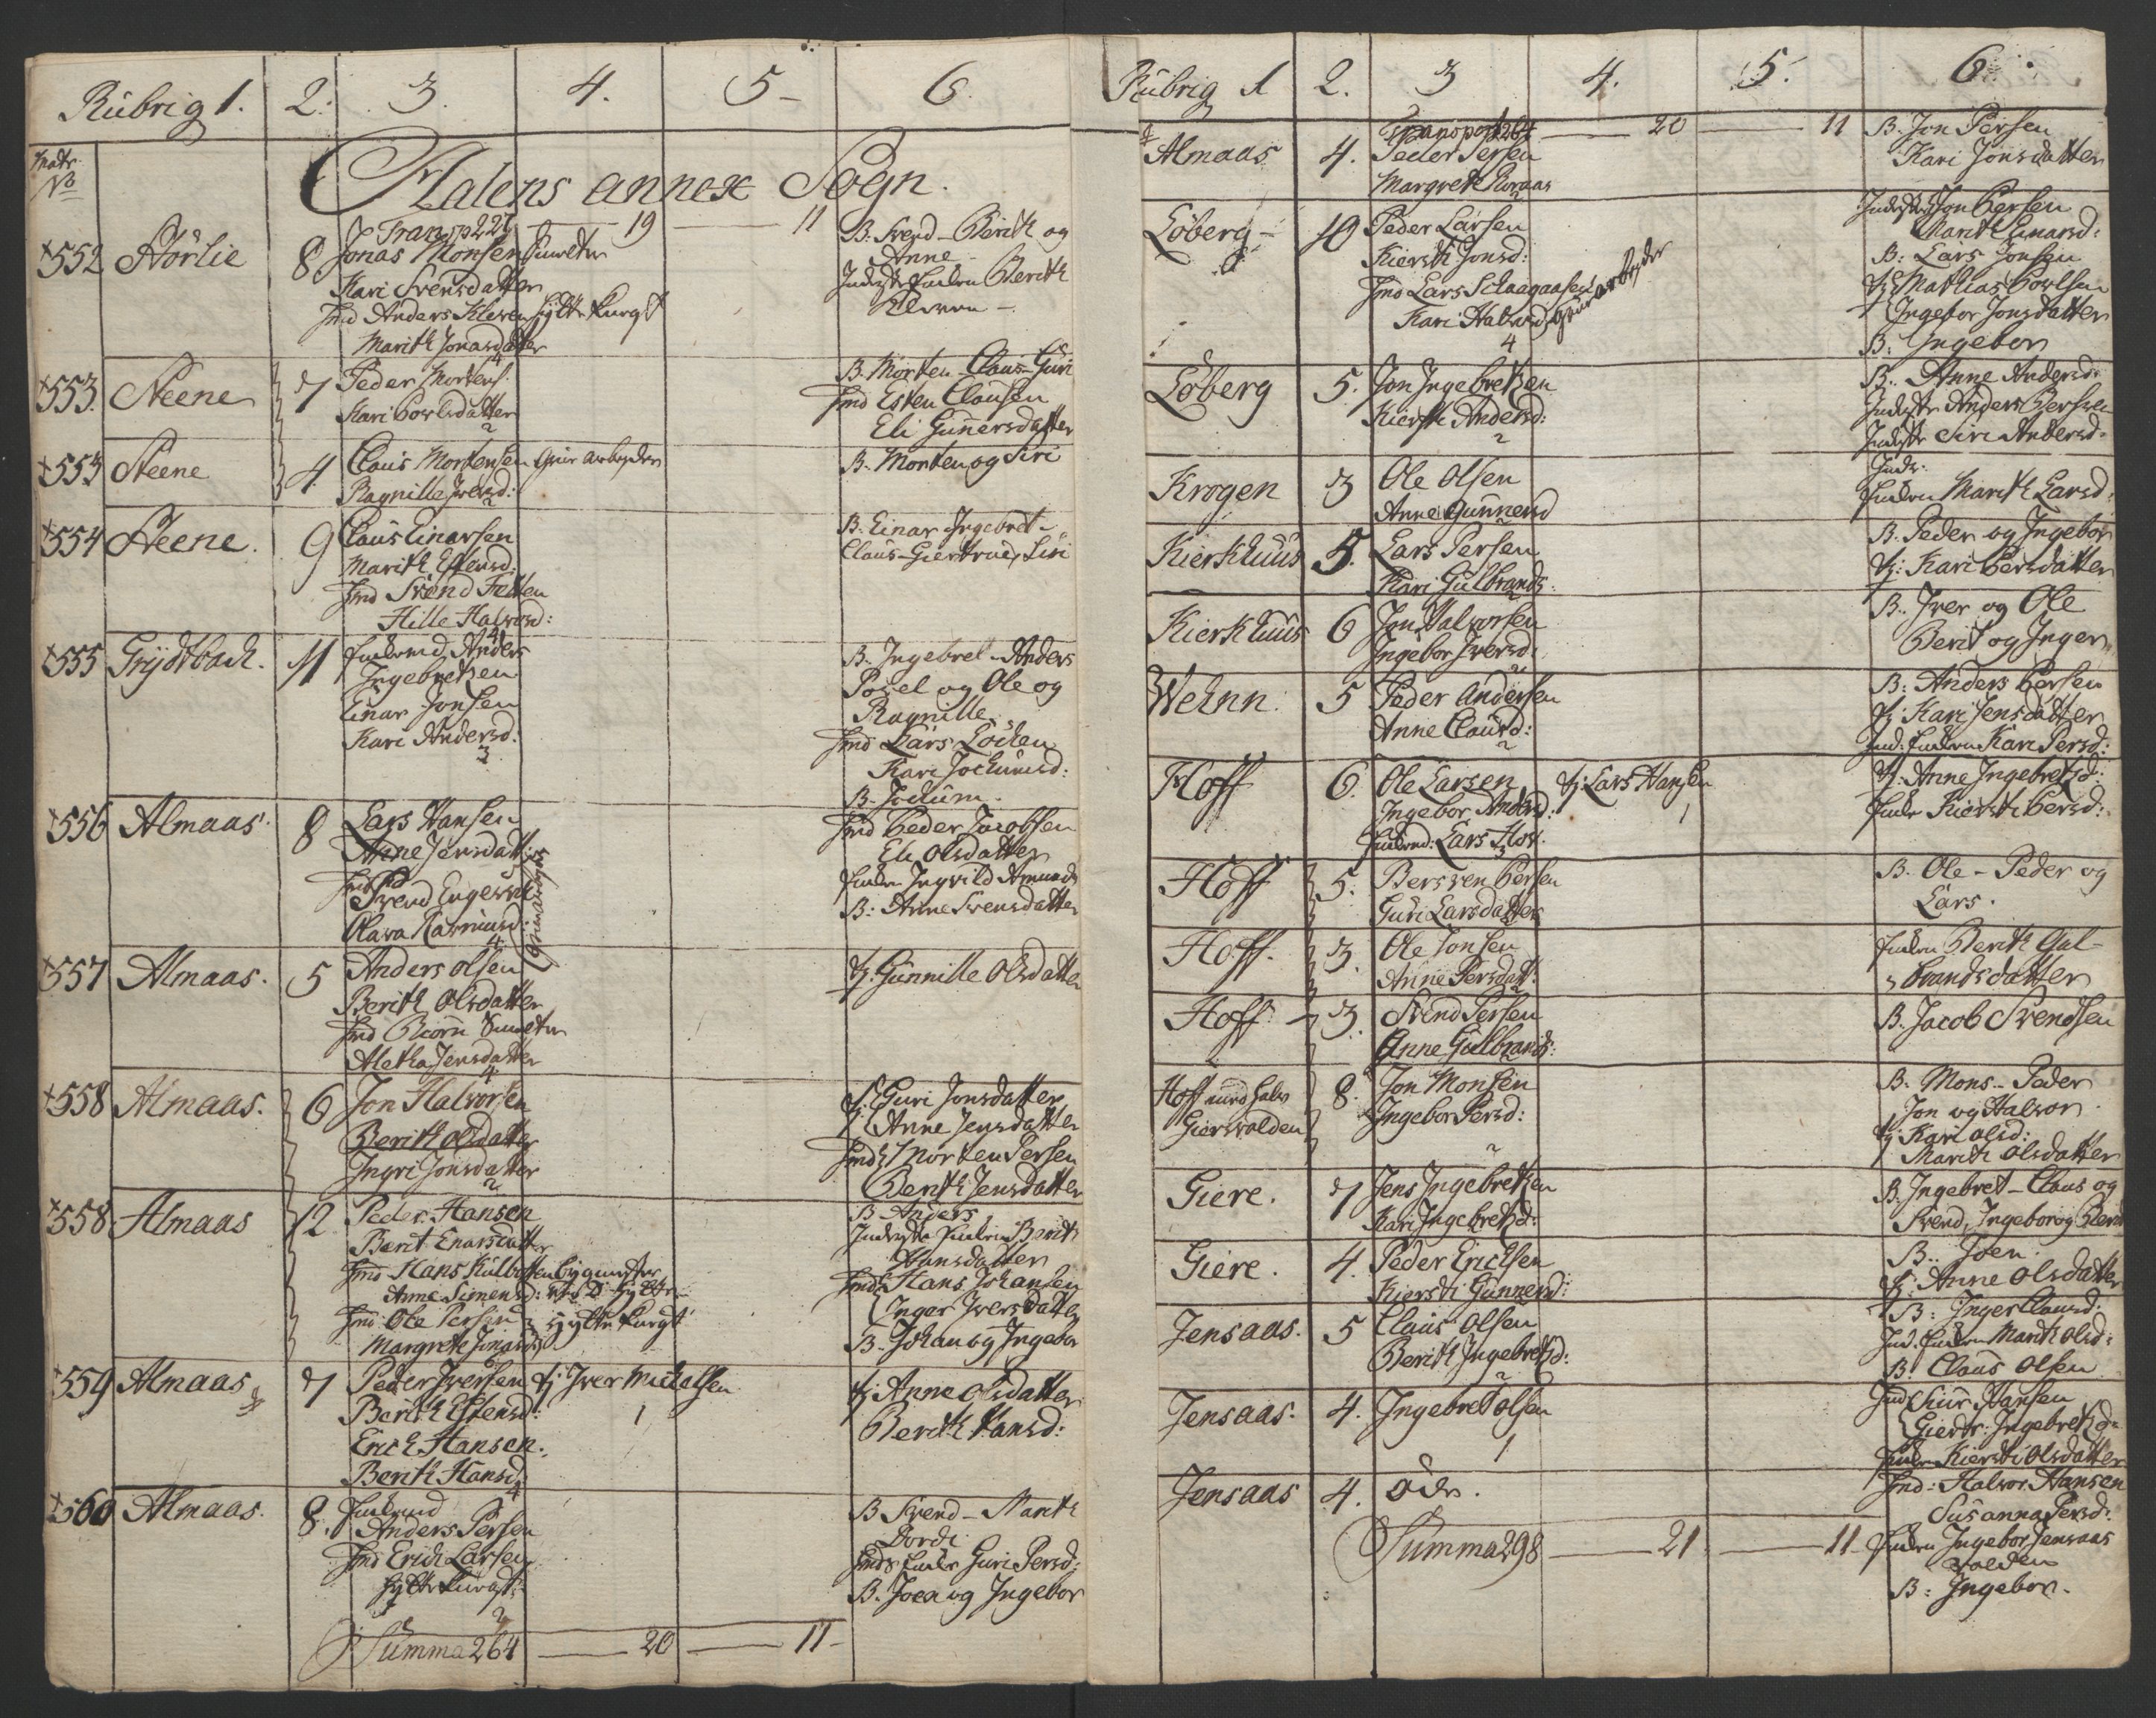 Rubrig 1. 2. 3. 4. 5 6.
Matr. No
Halens annex Sogn.
Transp 227 19 11
552 Störlie 8 Jonas Monsen
Kari Svensdatter
Ind Anders Kleven
Marith Jonasdatter
4
B. Svend - Berith og
Anne
Berith
Kleven
553. Steene 7 Peder Mortens.
Kari Povelsdatter
2
B. Morten - Claus - Guri
Ind Esten Clausen
Eli Gunnersdatter
553 Steene 4 Claus Mortensen Gruv arbeyder
Ragnille Iversd:
2
B. Morten og Siri
554 Steene. 9 Claus Einersen
Marith Estensd:
Ind Svend Fetten
Hille Halvorsd:
4
B. Einar - Ingebret -
Claus - Giertrud, Siri
555 Grydtbach. 11 Enkemd Anders
Ingebretsen
Einar Jonsen
Kari Andersd:
3
B. Ingebret - Anders
Povel og Ole og
Ragnille.
Ind Lars Löchen
Kari Jochumsd:
B. Jochum.
556 Almaas. 8 Lars Hansen
Anne Jensdatt:
Ind
Svend Engesvol
Olava Rasmusd:
4
Ind Peder Jacobsen
Eli Olsdatter
Enke Ingvild Amunds
B: Anne Svensdatter
557 Almaas. 5 Anders Olsen
Berith Olsdatter
Ind Biörn Smelter
Aletha Jensdatter
4
tj. Gunnille Olsdatter
558 Almaas. 6 Jon Halvorsen
Berith Olsdatter
Ingri Jonsdatter
2
Guri Jonsdatter
tj. Anne Jensdatter
Ind Morten Persen
Berith Jensdatter
558 Almaas 12 Peder Hansen
Berit Enarsdatter
Ind Hans Külbotten
Anne Simensd:
Ind Ole Persen
Margrete Jonasd
6
B Anders
Enke Berith
Hansdatter
Ind Hans Johansen
Inger Iversdatter
B. Johan og Ingebor
559 Almaas 7 Peder Iversen tj: Iver Michelsen
Berith Estensd: 1
Erich Hansen.
Berith Hansd.
4
tj Anne Olsdatter
Berith Hansd:
560 Almaas. 8. Enkemd
Anders Persen
Ind Erich Larsen
2
B Svend - Marith
Dordi
Guri Persd:
B. Joen og Ingebor
Summa 264 20 11
Rubrig 1 2. 3 4. 5. 6.
Transport 264 20 11
Almaas 4. Peder Persen
Margrete
2
B. Jon Persen
Kari Jonsdatter
Löberg 10 Peder Larsen
Kiersti Jonsd:
Ind Lars Schaagaasen
Kari Halvorsd. Gruvarbeyder
4
Jon Persen
Marith
B: Lars Jonsen
tj Mathias Povelsen
Ingebor Jonsdatter
B: Ingebor
Löberg 5. Jon Ingebretsen
Kiersti Andersd:
2
B. Anne Andersd:
Anders Persen
Siri Andersd.
Krogen 3 Ole Olsen
Anne Gunnersd
2
Inds.
Enken Marith Larsd:
Kierkhuus 5. Lars Persen
Kari Gulbrands
2
B. Peder og Ingebor
tj: Kari Persdatter
Kierkhuus 6 Jon Halvorsen
Ingebor Iversd:
2
B. Iver og Ole
Berit og Inger
Wehnn. 5 Peder Andersen
Anne Clausd:
2
B: Anders Persen
tj: Kari Jensdatter
Ind: Enken Kari Persd:
Hoff 6. Ole Larsen tj. Lars Hansen
Ingebor Andersd: 1
Enkemd: Lars Hov.
3
tj. Anne Ingebretsd:
Enke Kiersti Persd:
Hoff 5. Bersven Persen
Guri Larsdatter
2
B. Ole - Peder og
Lars.
Hoff. 3. Ole Jonsen
Anne Persdatt:
2
Enken Berith Gul-
brandsdatter
Hoff 3. Svend Persen
Anne Gulbrands:
2
B. Jacob Svendsen
Hoff med halv
Giersvolden 8. Jon Monsen
Ingebor Persd:
2
B. Mons - Peder
Jon og Halvor.
tj: Kari Olsd:
Marith Olsdatter
Giere. 7 Jens Ingebretsen
Kari Ingebretsd:
2
B. Ingebret - Claus og
Svend, Ingebor og Berith
Giere. 4. Peder Erichsen
Kiersti Gunnersd:
2
B. Joen
tj: Anne Olsdatter
Jensaas. 5 Claus Olsen
Berith Ingebretsd:
2
B: Inger Clausd:
Ind. Enken Marith Olsd:
B. Claus Olsen
Jensaas. 4. Ingebret Olsen
1
Ind Siur Hansen
Giertr: Ingebretsd:
Enken Kiersti Olsdatter
Jensaas 4. öde.
Ind: Halvor Hansen
Susanna Persd:
Enken Ingebor Jensaas
volden
B: Ingebor.
Summa 298 21 11